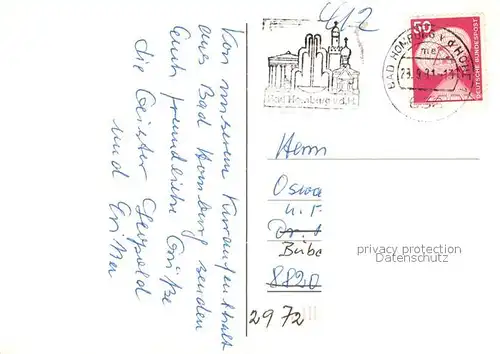 Von unserem Kuraufenthalt
aus Bad Homburg senden
Euch freundliche Grüße
die Geister Leopold
und Erika
412
Bad Homburg v.d.H.
BAD HOMBURG v d HÖHE
me
50
DEUTSCHE BUNDESPOST
Herrn
Oswa
u. F.
Dr.
Bibe
8820
2972
privacy protection
Datenschutz